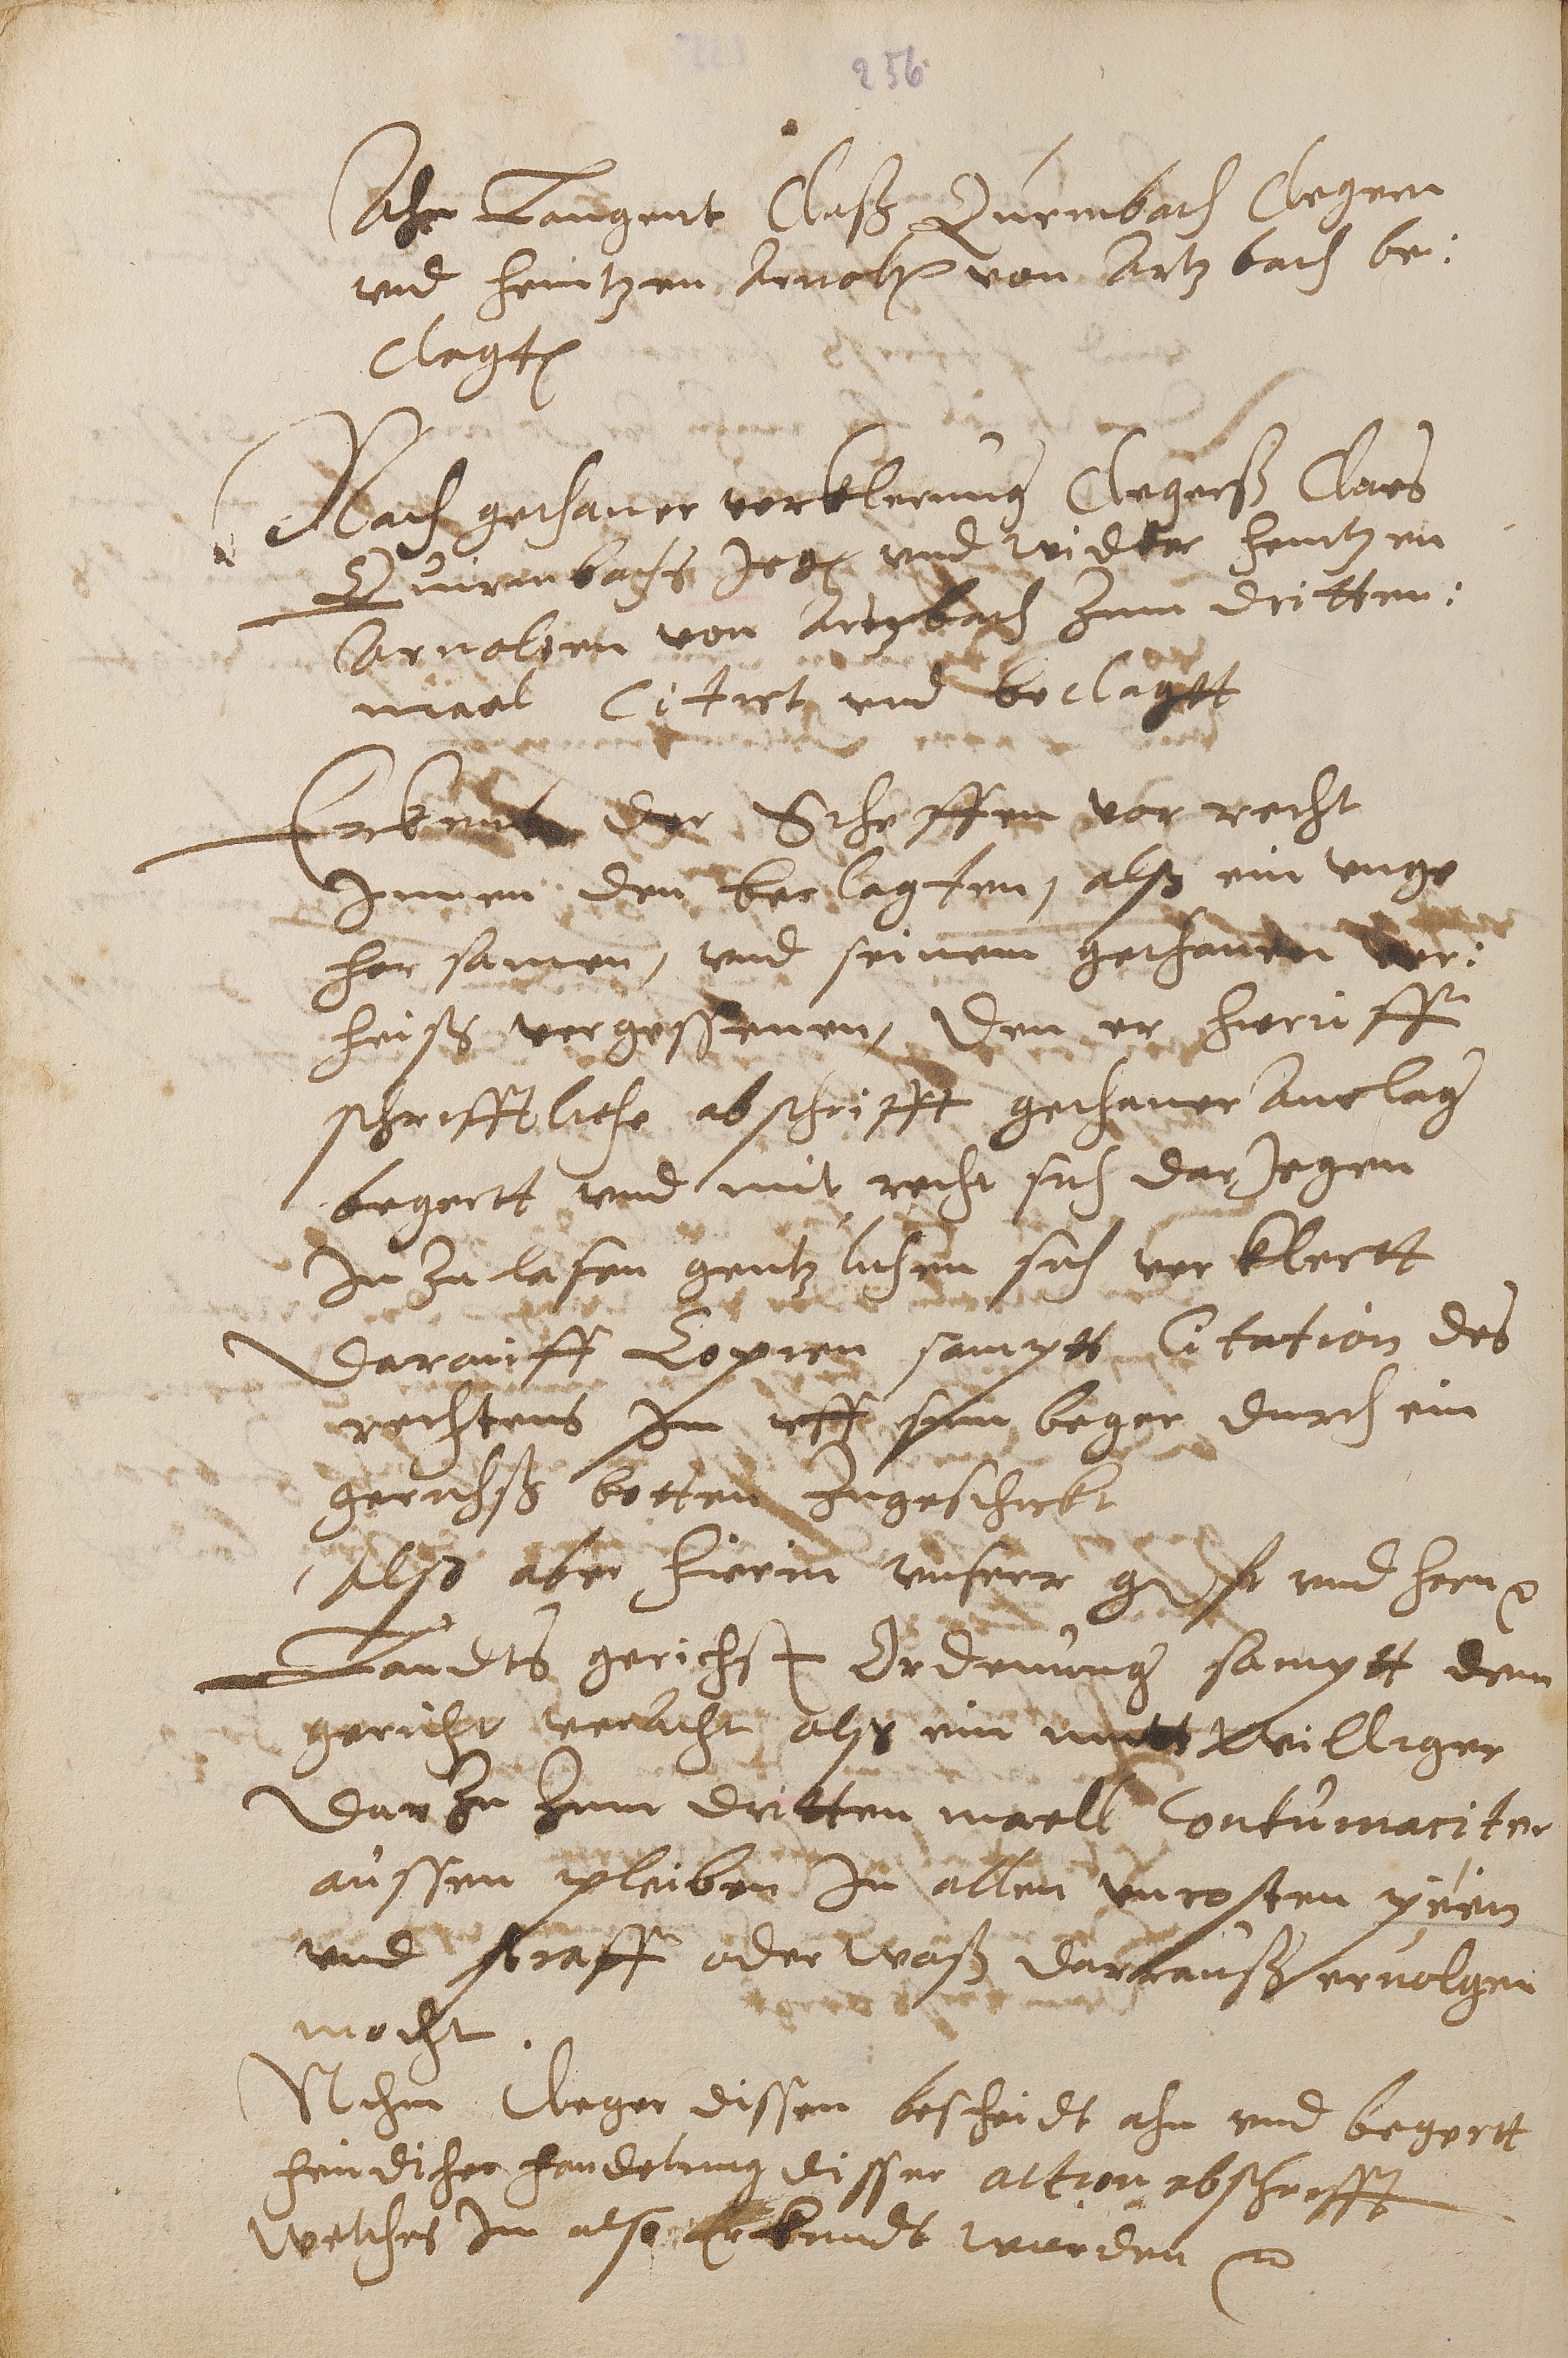 256
Ahn Langent Claß Quirnbach Clegern
vnd heintzen Arnoltz von Artzbach be:
Clagtt
Nach gethaner verklerung Clegerß Claes
Quirnbachs Jegen vnd widder heintzen
Arnolten von Artzbach zum dritten:
maal Citirt vnd beclagtt
Erkent der Scheffen vor recht
Innen den beclagten, alß ein unge
hor samen, vnd seinem gethanen ver:
heiß vergessenen, den er hieruff
schrifftliche abschrifft gethaner Anclag
begertt vnd mit recht sich dar Jegen
In zu lasen gentzlichen sich verklertt
Darauff Copien samptt Citation des
rechtens Im uff sein beger durch ein
gerichß botten zugeschickt
Also aber hierin vnserr g f vnd hern
Landts gerichst Ordenung samptt dem
gericht veracht alß ein mutt williger
Dar zu zum dritten maell Contumaciter
aussen pleiben In allen vncosten peen
vnd straff oder waß darrauß ervolgen
mocht.
Nhem Cleger dissen bescheidt ahn vnd begertt
handelung disser action abschrifft
welches Im also erkandt worden